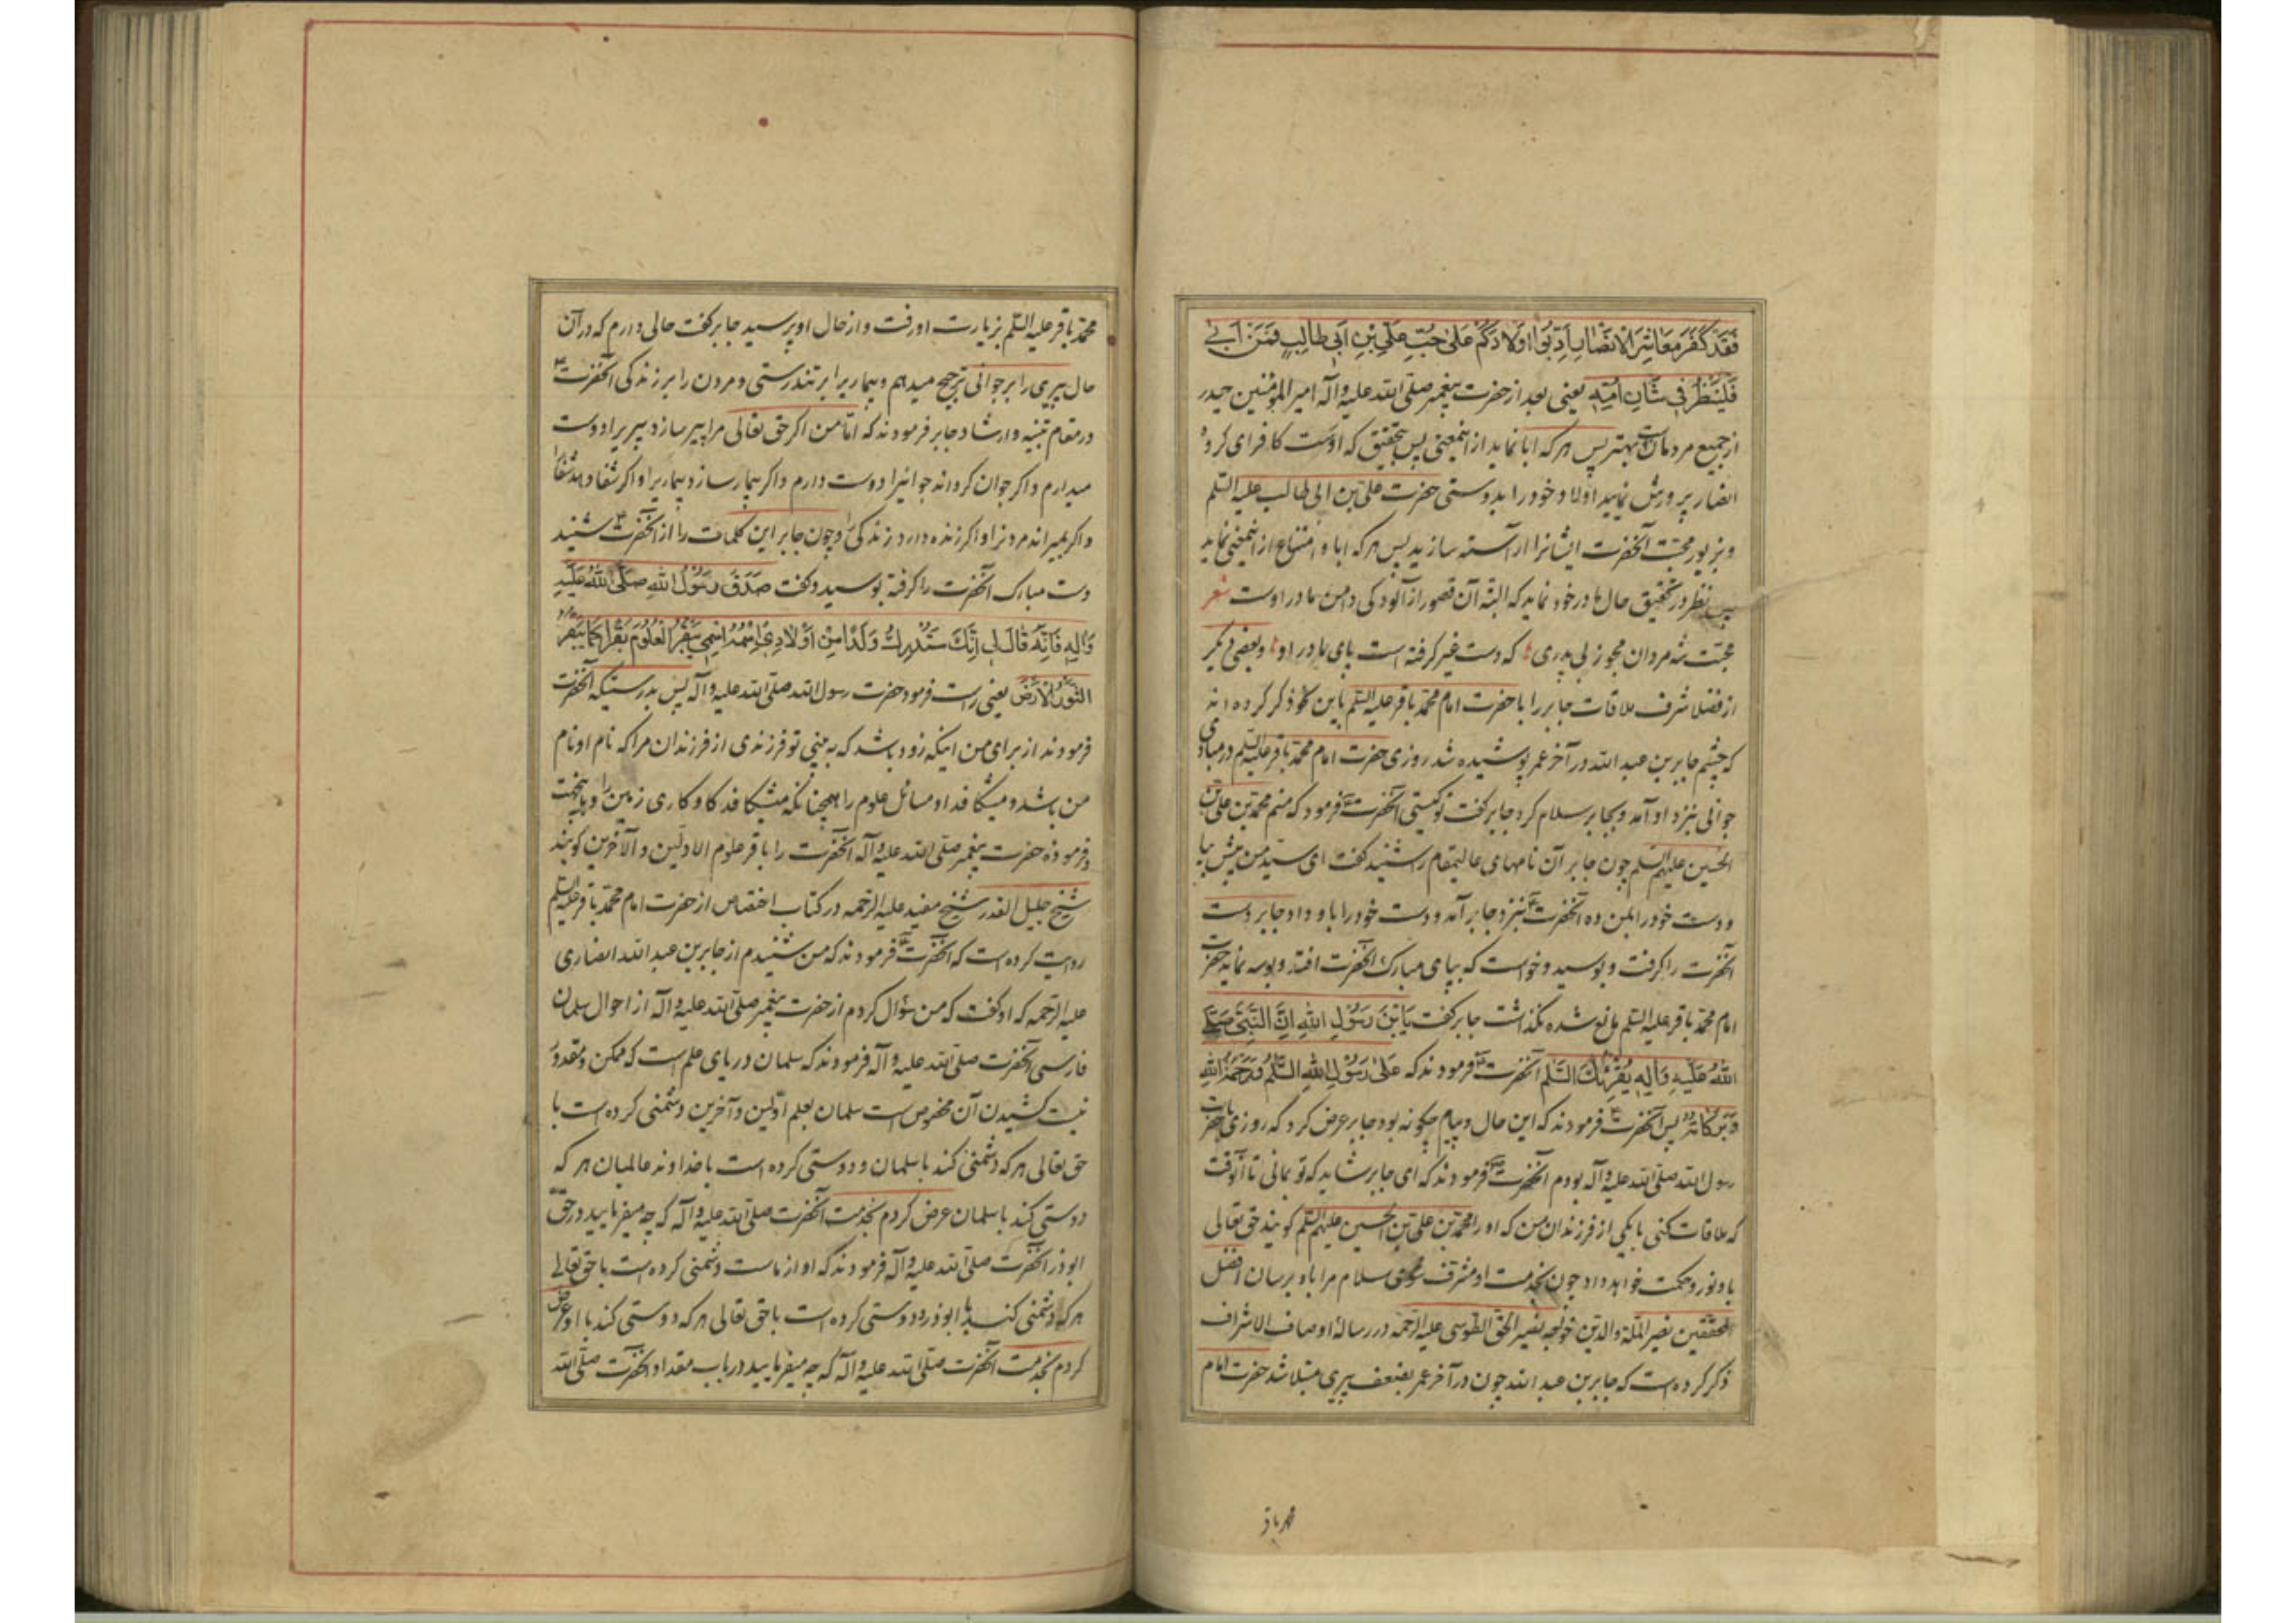 فَقَدْ كَفَرَ مَعَاشِرَ الْاَنْصَارِ اَدِّبُوا اَوْلَادَكُمْ عَلٰى حُبِّ عَلِيِّ بْنِ اَبِي طَالِبٍ فَمَنْ اَبٰى
فَلْيَنْظُرْ فِي شَأْنِ اُمِّهِ یعنی بعد از حضرت پیغمبر صلی الله علیه و آله امیر المؤمنین حیدر
از جمیع مردمان بهتر است پس هر که ابا نماید از اینمعنی پس بتحقیق که اوست کافر ای کروه
انصار پرورش نمایید اولاد خود را بدوستی حضرت علی بن ابی طالب علیه السلم
و بزیور محبت آنحضرت ایشانرا آراسته سازید پس هر که ابا و امتناع از اینمعنی نماید
پس نظر در تحقیق حال مادر خود نماید که البته آن قصور از آلودکی دامن مادر اوست شعر
محبت شه مردان مجو ز بی پدری که دست غیر کرفته است پای مادر او و بعضی دیکر
از فضلا شرف ملاقات جابر را با حضرت امام محمد باقر علیه السلم باین نحو ذکر کرده اند
که چشم جابر بن عبد الله در آخر عمر پوشیده شد روزی حضرت امام محمد باقر علیه السلم در مبادی
جوانی بنزد او آمد و بجابر سلام کرد جابر کفت تو کیستی آنحضرت فرمود که منم محمد بن علی بن
الحسین علیهم السلم چون جابر آن نامهای عالیمقام را شنید کفت ای سید من پیش بیا
و دست خود را بمن ده آنحضرت بنزد جابر آمد و دست خود را باو داد جابر دست
آنحضرت را کرفت و بوسید و خواست که بپای مبارک آنحضرت افتد و بوسه نماید حضرت
امام محمد باقر علیه السلم مانع شده نکذاشت جابر کفت يَا بْنَ رَسُولِ اللهِ اِنَّ النَّبِيَّ صَلَّى
اللهُ عَلَيْهِ وَاٰلِهِ يُقْرِئُكَ السَّلٰمَ آنحضرت فرمودند که عَلٰى رَسُولِ اللهِ السَّلٰمُ وَرَحْمَةُ اللهِ
وَبَرَكَاتُهُ پس آنحضرت فرمودند که این حال و پیام چکونه بود جابر عرض کرد که روزی با حضرت
رسول الله صلی الله علیه و آله بودم آنحضرت فرمودند که ای جابر شاید که تو بمانی تا آنوقت
که ملاقات کنی با یکی از فرزندان من که او را محمد بن علی بن الحسین علیهم السلم کویند حق تعالی
باو نور و حکمت خواهد داد چون بخدمت او مشرف شوی سلام مرا باو برسان افضل
المحققین نصیر الملة والدین خواجه نصیر الحق الطوسی علیه الرحمه در رساله اوصاف الاشراف
ذکر کرده است که جابر بن عبد الله چون در آخر عمر بضعف پیری مبتلا شد حضرت امام
محمد باقر
محمد باقر علیه السلم بزیارت او رفت و از حال او پرسید جابر کفت حالی دارم که در آن
حال پیری را بر جوانی ترجیح میدهم و بیماریرا بر تندرستی و مردن را بر زندکی آنحضرت
در مقام تنبیه و ارشاد جابر فرمودند که اما من اکر حق تعالی مرا پیر سازد پیریرا دوست
میدارم و اکر جوان کرداند جوانیرا دوست دارم و اکر بیمار سازد بیماریرا و اکر شفا دهد شفا را
و اکر بمیراند مردنرا و اکر زنده دارد زندکی را و چون جابر این کلمات را از آنحضرت شنید
دست مبارک آنحضرت را کرفته بوسید و کفت صَدَقَ رَسُولُ اللهِ صَلَّى اللهُ عَلَيْهِ
وَاٰلِهِ فَاِنَّهُ قَالَ لِي اِنَّكَ سَتُدْرِكُ وَلَدًا مِنْ اَوْلَادِي اِسْمُهُ اِسْمِي يَبْقُرُ الْعُلُومَ بَقْرًا كَمَا يَبْقُرُ
الثَّوْرُ الْاَرْضَ یعنی راست فرمود حضرت رسول الله صلی الله علیه و آله پس بدرستیکه آنحضرت
فرمودند از برای من اینکه زود باشد که به بینی تو فرزندی از فرزندان مرا که نام او نام
من باشد و میشکافد او مسائل علوم را همچنانکه میشکافد کاو کاری زمین را و باینجهت
فرموده حضرت پیغمبر صلی الله علیه و آله آنحضرت را باقر علوم الاولین و الآخرین کویند
شیخ جلیل القدر شیخ مفید علیه الرحمه در کتاب اختصاص از حضرت امام محمد باقر علیه السلم
روایت کرده است که آنحضرت فرمودند که من شنیدم از جابر بن عبد الله انصاری
علیه الرحمه که او کفت که من سؤال کردم از حضرت پیغمبر صلی الله علیه و آله از احوال سلمان
فارسی آنحضرت صلی الله علیه و آله فرمودند که سلمان دریای علم است که ممکن و مقدور
نیست کشیدن آن مخصوص است سلمان بعلم اولین و آخرین دشمنی کرده است با
حق تعالی هر که دشمنی کند با سلمان و دوستی کرده است با خداوند عالمیان هر که
دوستی کند با سلمان عرض کردم بخدمت آنحضرت صلی الله علیه و آله که چه میفرمایید در حق
ابوذر آنحضرت صلی الله علیه و آله فرمودند که او از ماست دشمنی کرده است با حق تعالی
هر که دشمنی کند با ابوذر و دوستی کرده است با حق تعالی هر که دوستی کند با او عرض
کردم بخدمت آنحضرت صلی الله علیه و آله که چه میفرمایید در باب مقداد آنحضرت صلی الله